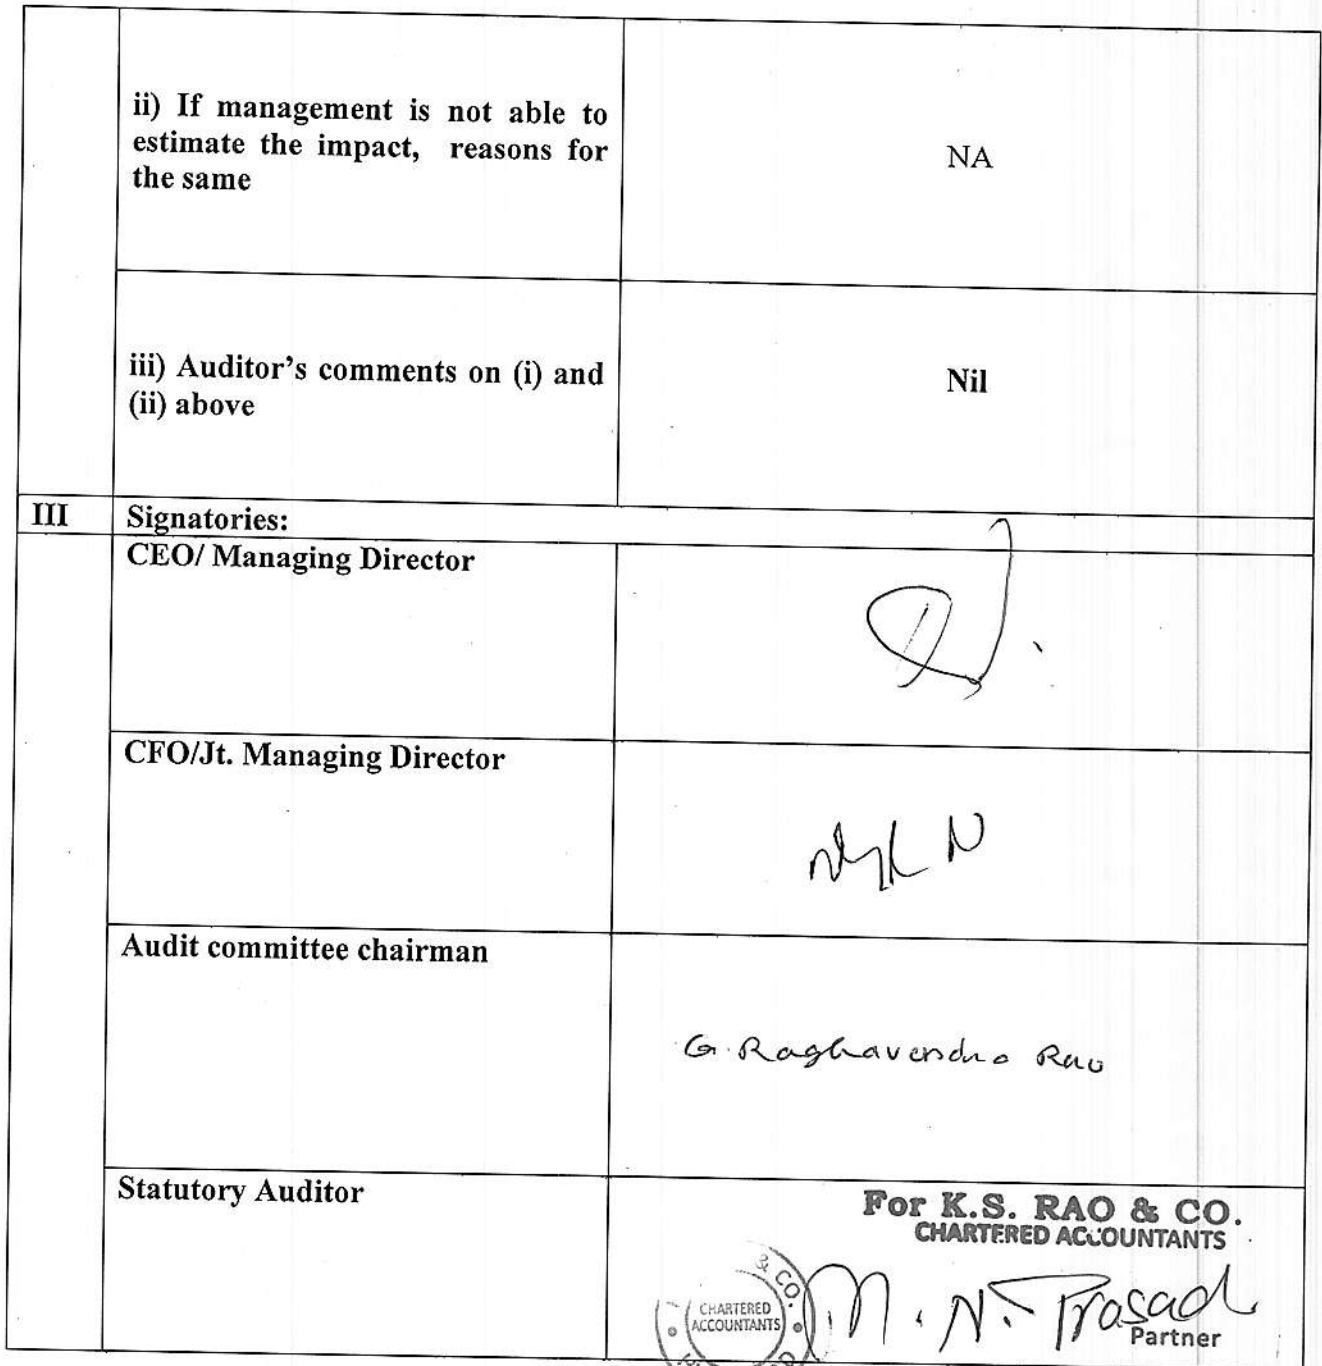 ii) If management is not able to
estimate the impact, reasons for
the same
NA
iii) Auditor's comments on (i) and
(ii) above
Nil
III Signatories:
CEO/ Managing Director
CFO/Jt. Managing Director
Audit committee chairman
G. Raghavendra Rao
Statutory Auditor
For K.S. RAO & CO.
CHARTERED ACCOUNTANTS
& CO.
CHARTERED
ACCOUNTANTS
M. N. Prasad
Partner